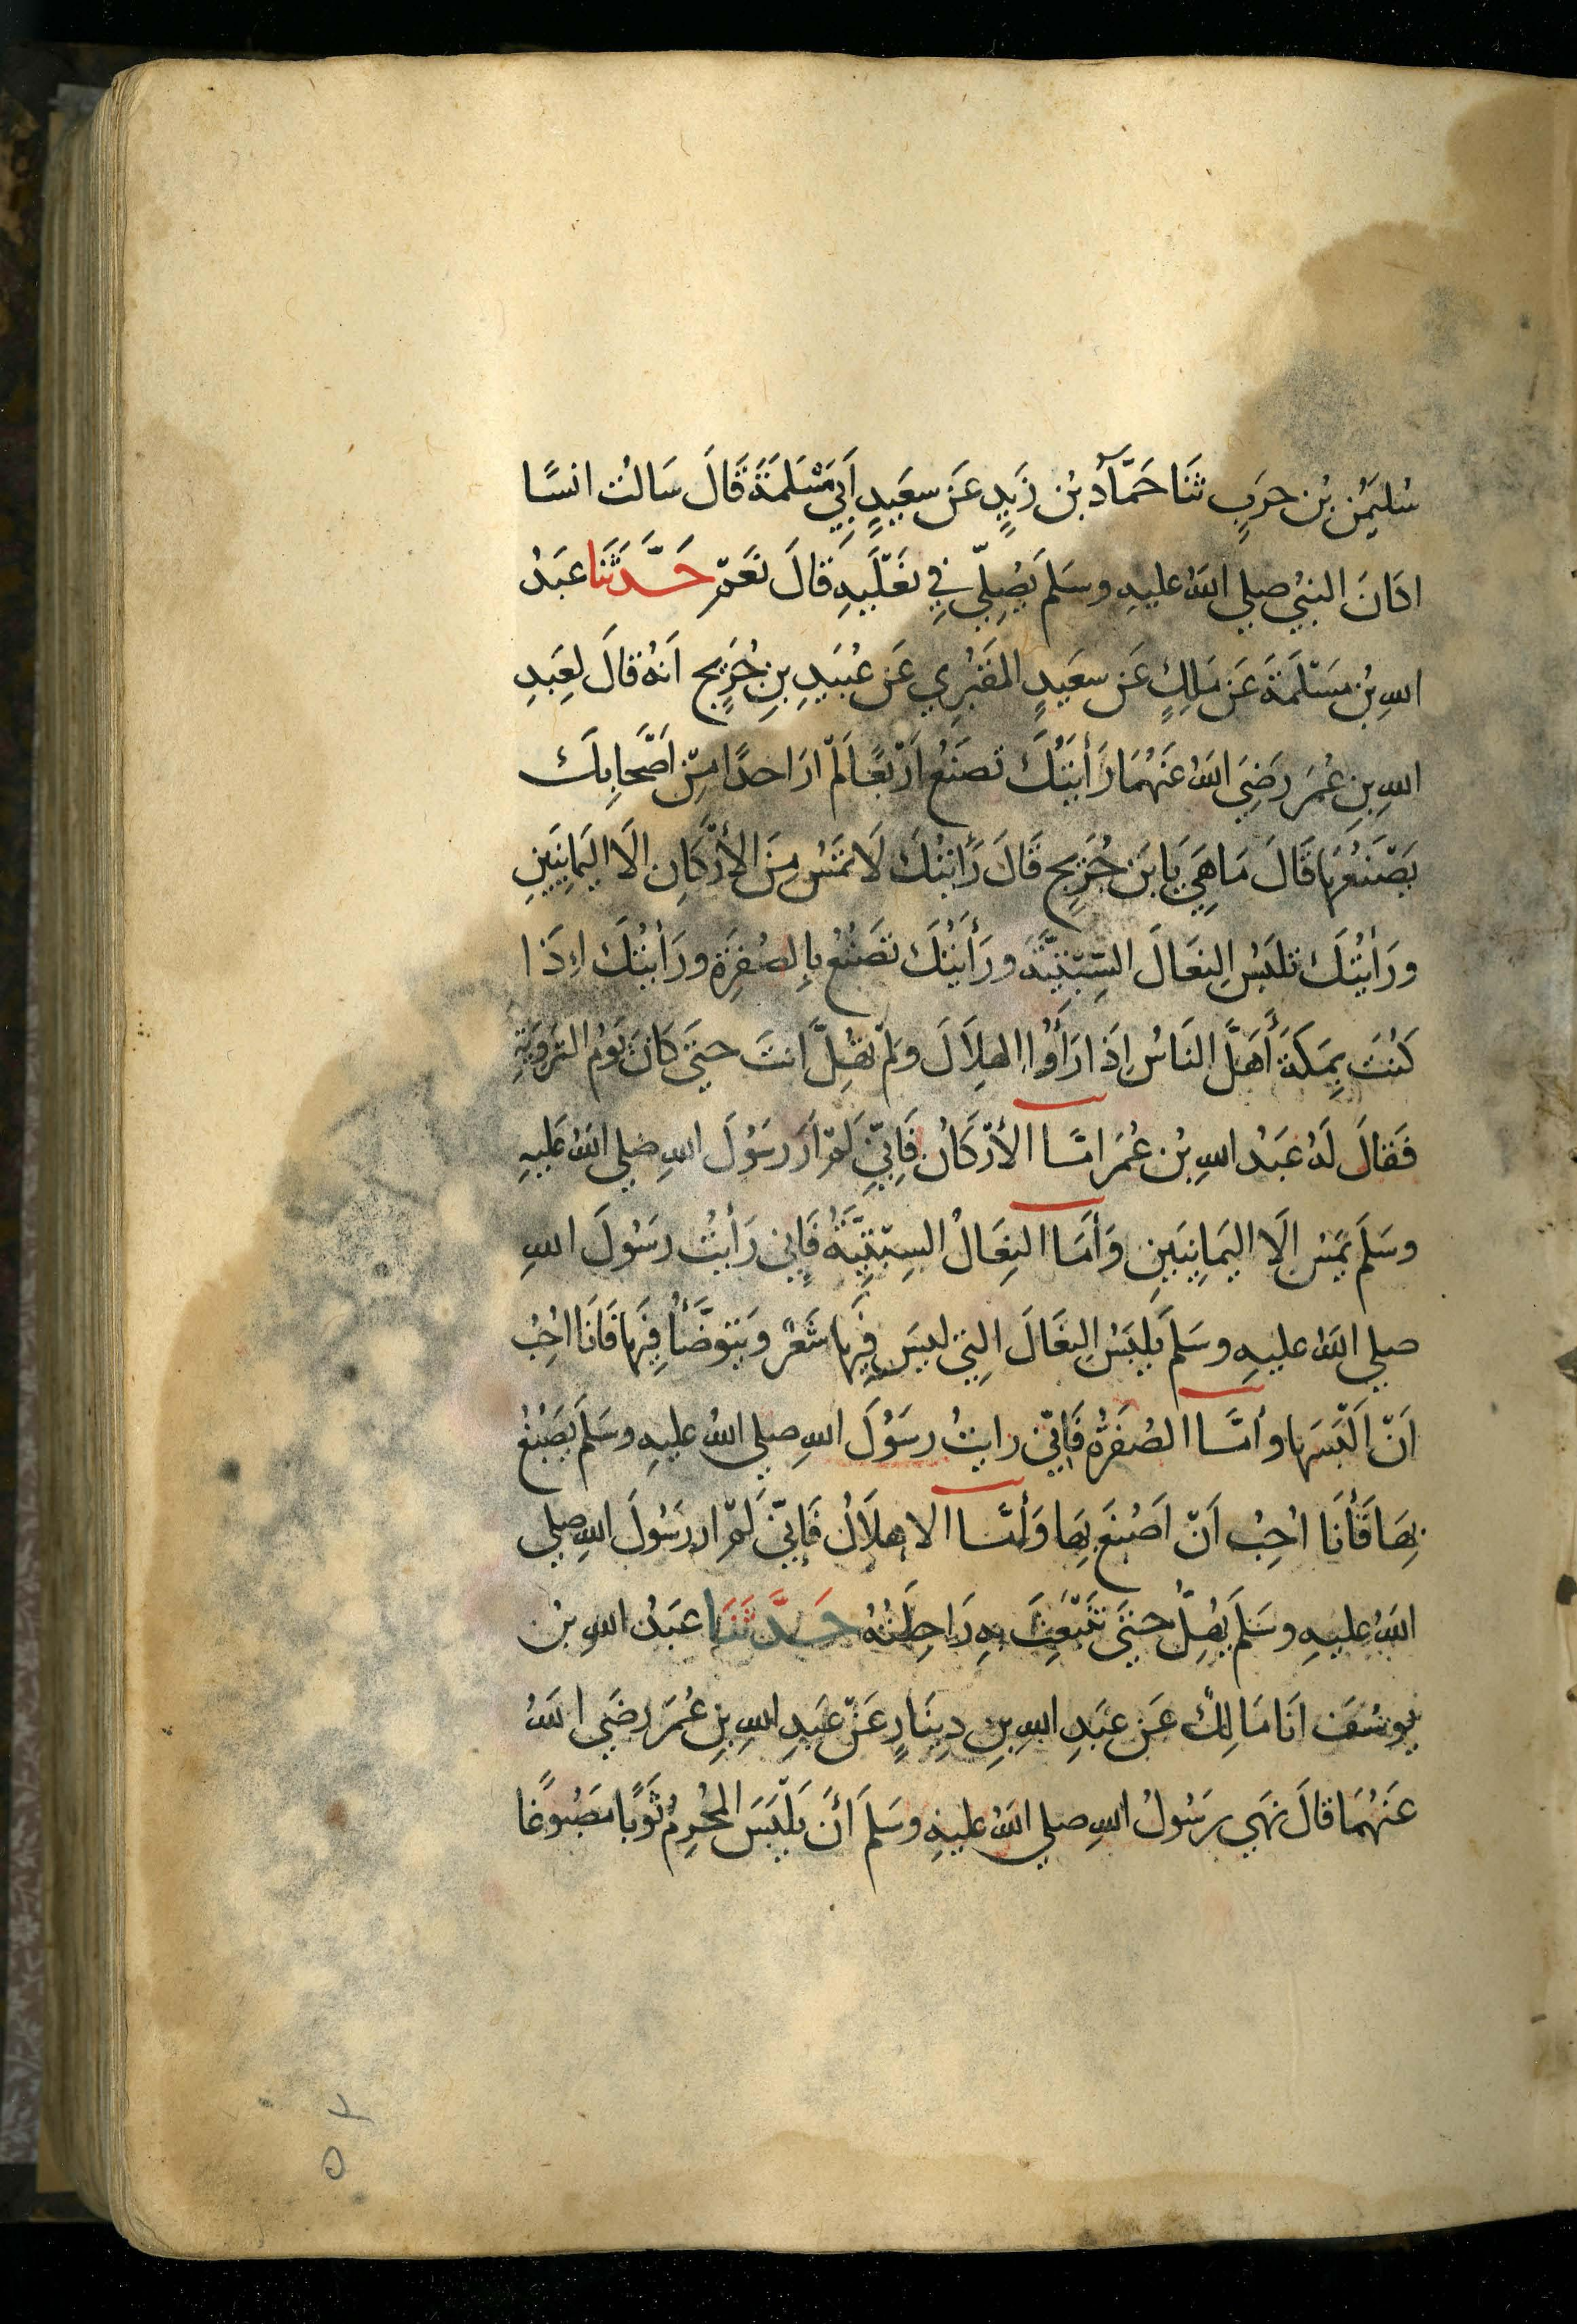 سُليمٰن بْن حربٍ ثَنَا حَمَّادُ بْن زَيدٍ عَن سعيدٍ أَبِي مَسْلَمَةَ قَالَ سَالتُ انسًا
اكَانَ النبيُ صلي اللهُ عليهِ وسَلم يُصلّي فِي نَعْلَيهِ قَالَ نَعَمْ حَدَّثَنَا عَبدُ
اللهِ بْن مَسْلَمَةَ عَن مٰلِكٍ عَن سعيدٍ المقبُرِي عَن عُبَيدِ بنِ جُرَيجٍ اَنهُ قَالَ لِعَبدِ
اللهِ بنِ عُمَر رَضِيَ اللهُ عَنهُمَا رَأَيتُكَ تصنَعُ أَرْبَعًا لَمْ ارَ احدًا مِنْ اَصْحَابِكَ
يَصْنَعُهَا قَالَ مَا هِيَ يَا بنَ جُرَيجٍ قَالَ رَأَيتُكَ لَا تمَسُ مِنَ الأَرْكَانِ الَا اليَمَانِيَينِ
ورَأيتُكَ تلبَسُ النِعَالَ السِّبْتِيَّةَ ورَأَيتُكَ تَصْبُغُ بِالصُفرَةِ ورَأيتُكَ اِذَا
كُنتَ بِمَكَةَ أَهَلَّ النَاسُ اِذَا رَأَوُا الهِلَالَ ولم تُهِلَّ انتَ حتَي كَانَ يَوم التروِيَةِ
فَقالَ لَهُ عَبدُ اللهِ بْن عُمَر امَّا الأَرْكَانُ فَاِنِّي لَمْ ارَ رسُولَ اللهِ صلي اللهُ عليهِ
وسَلَم يمَسُ الَا اليَمانِيَينِ وَأَمَا النِعَالُ السِبْتِيَّةُ فَاِني رَأَيتُ رسُولَ اللهِ
صلي اللهُ عليهِ وسَلم يلبَسُ النِعَالَ التِي ليسَ فِيهَا شَعْرٌ ويَتوضَّأُ فِيهَا فَانَا احِبُ
اَنْ اَلْبَسَهَا وأمَّا الصُفرَةُ فَاِنّي رايتُ رسُولَ اللهِ صلي اللهُ عليهِ وسَلم يَصْبُغُ
بِهَا فَأَنَا احِبُ اَنْ اَصْبُغَ بِهَا وَأمَّا الاهلَالُ فَاِنّي لَمْ ار رسُولَ اللهِ صلي
اللهُ عليهِ وسَلم يُهِلُّ حتَي تَنْبَعِثَ بهِ رَاحِلَتُهُ حَدَّثَنَا عَبدُ اللهِ بْن
يوسُفَ انَا مَالِكٌ عَن عَبدِ اللهِ بنِ دِينَارٍ عَنْ عَبدِ اللهِ بنِ عُمَرَ رضيَ اللهُ
عَنهُمَا قَالَ نهَي رسُولُ اللهِ صلي اللهُ عليهِ وسَلم أَنْ يَلْبَسَ المُحْرِمُ ثَوبًا مَصْبُوغًا